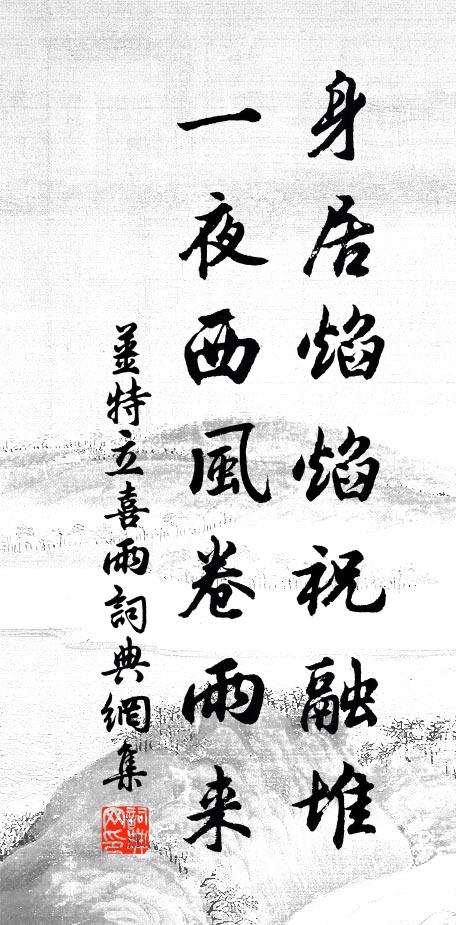 身居焰焰祝融堆
一夜西風卷雨来
姜特立喜雨詞典網集